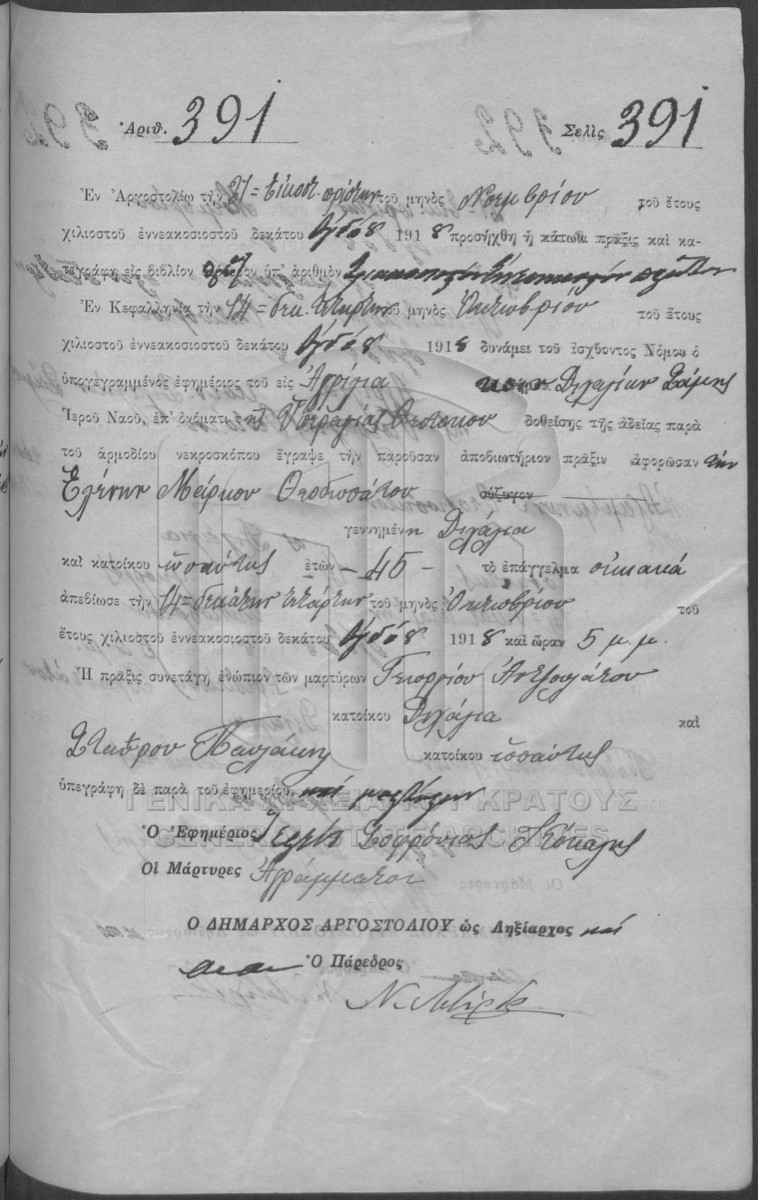 Ἀριθ. 391 Σελὶς 391
Ἐν Ἀργοστολίῳ τὴν 21= Εἰκοστ. πρώτην τοῦ μηνὸς Νοεμβρίου τοῦ ἔτους
χιλιοστοῦ ἐννεακοσιοστοῦ δεκάτου Ὀγδόου 1918 προσήχθη ἡ κάτωθι πρᾶξις καὶ κα-
τεγράφη εἰς βιβλίον ὑπ' ἀριθμὸν
Ἐν Κεφαλληνίᾳ τὴν 14= δεκ. τετάρτην τοῦ μηνὸς Ὀκτωβρίου τοῦ ἔτους
χιλιοστοῦ ἐννεακοσιοστοῦ δεκάτου Ὀγδόου 1918 δυνάμει τοῦ ἰσχύοντος Νόμου ὁ
ὑπογεγραμμένος ἐφημέριος τοῦ εἰς Ἀγρίλια Διχαλίων Σάμης
Ἱεροῦ Ναοῦ, ἐπ' ὀνόματι τῆς Ὑπεραγίας Θεοτόκου δοθείσης τῆς ἀδείας παρὰ
τοῦ ἁρμοδίου νεκροσκόπου ἔγραψε τὴν παροῦσαν ἀποβιωτήριον πρᾶξιν ἀφορῶσαν τὴν
Ἑλένην Μάρκου Θεοδωράτου σύζυγον
γεννημένη Διχάλια
καὶ κατοίκου ὡσαύτως ἐτῶν — 45 — τὸ ἐπάγγελμα οἰκιακά
ἀπεβίωσε τὴν 14= δεκάτην τετάρτην τοῦ μηνὸς Ὀκτωβρίου τοῦ
ἔτους χιλιοστοῦ ἐννεακοσιοστοῦ δεκάτου Ὀγδόου 1918 καὶ ὥραν 5 μ.μ.
Ἡ πρᾶξις συνετάγη ἐνώπιον τῶν μαρτύρων Γεωργίου Ἀντζουλάτου
κατοίκου Διχάλια καὶ
Σταύρου Παυλάκη κατοίκου ὡσαύτως
ὑπεγράφη δὲ παρὰ τοῦ ἐφημερίου καὶ μαρτύρων
ΓΕΝΙΚΑ ΑΡΧΕΙΑ ΤΟΥ ΚΡΑΤΟΥΣ
GENERAL STATE ARCHIVES
Ὁ Ἐφημέριος Σωφρόνιος
Οἱ Μάρτυρες Ἀγράμματοι
Ο ΔΗΜΑΡΧΟΣ ΑΡΓΟΣΤΟΛΙΟΥ ὡς Ληξίαρχος καὶ
Ὁ Πάρεδρος